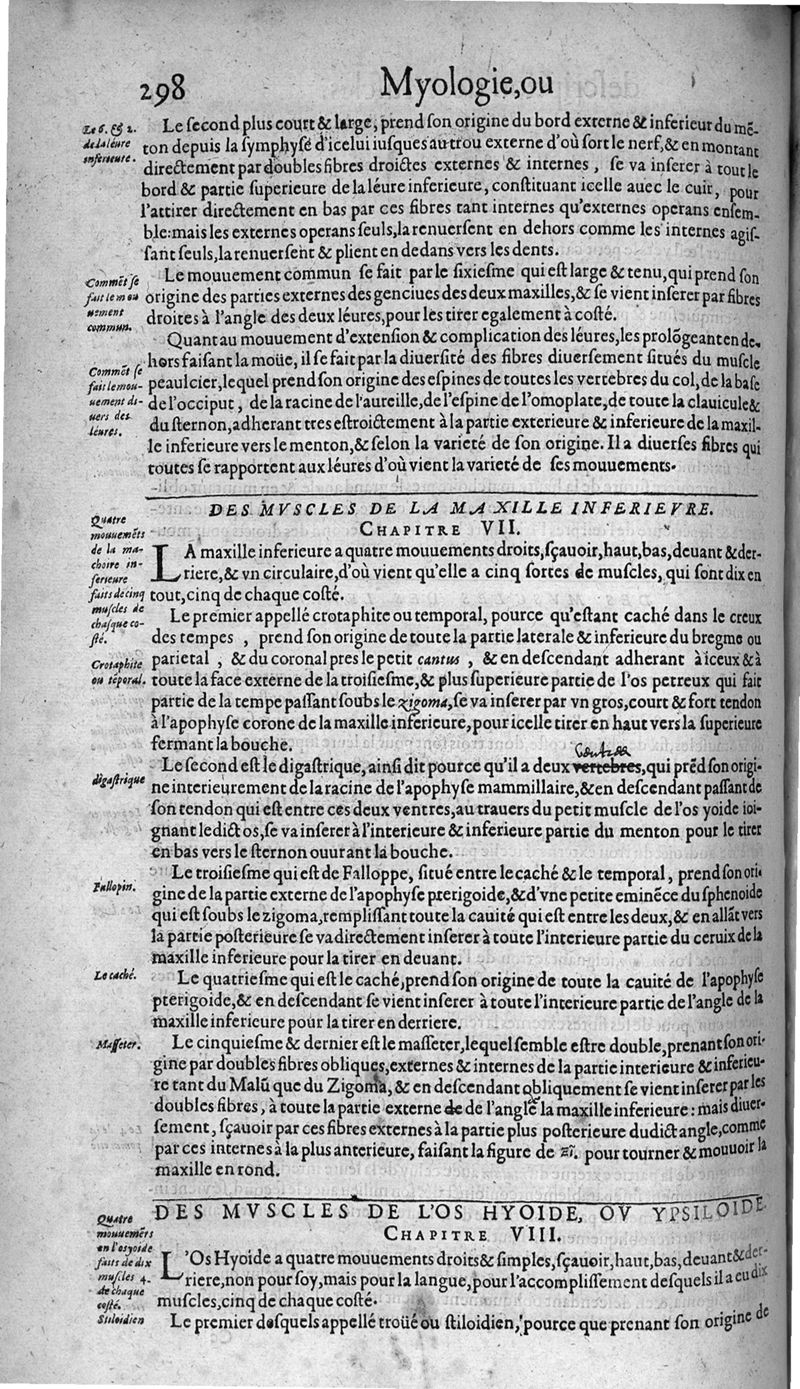 298
Myologie, ou
Le 6. & 2.
de la léure
inferieure.
Le second plus court & large, prend son origine du bord externe & inferieur du mē-
ton depuis la symphyse d'icelui iusques au trou externe d'où sort le nerf, & en montant
directement par doubles fibres droictes externes & internes, se va inserer à tout le
bord & partie superieure de la léure inferieure, constituant icelle auec le cuir, pour
l'attirer directement en bas par ces fibres tant internes qu'externes operans ensem-
ble: mais les externes operans seuls, la renuersent en dehors comme les internes agis-
sant seuls, la renuersent & plient en dedans vers les dents.
Commēt se
fait le mou
uement
commun.
Le mouuement commun se fait par le sixiesme qui est large & tenu, qui prend son
origine des parties externes des genciues des deux maxilles, & se vient inserer par fibres
droites à l'angle des deux léures, pour les tirer egalement à costé.
Commēt se
fait le mou-
uement di-
uers des
léures.
Quant au mouuement d'extension & complication des léures, les prolōgeant en de-
hors faisant la moüe, il se fait par la diuersité des fibres diuersement situés du muscle
peaulcier, lequel prend son origine des espines de toutes les vertebres du col, de la base
de l'occiput, de la racine de l'aureille, de l'espine de l'omoplate, de toute la clauicule &
du sternon, adherant tres estroictement à la partie exterieure & inferieure de la maxil-
le inferieure vers le menton, & selon la varieté de son origine. Il a diuerses fibres qui
toutes se rapportent aux léures d'où vient la varieté de ses mouuements.
DES MVSCLES DE LA MAXILLE INFERIEVRE.
CHAPITRE VII.
Quatre
mouuemēts
de la ma-
choire in-
ferieure
faits de cinq
muscles de
chasque co-
sté.
LA maxille inferieure a quatre mouuements droits, sçauoir, haut, bas, deuant & der-
riere, & vn circulaire, d'où vient qu'elle a cinq sortes de muscles, qui sont dix en
tout, cinq de chaque costé.
Crotaphite
ou tēporal.
Le premier appellé crotaphite ou temporal, pource qu'estant caché dans le creux
des tempes, prend son origine de toute la partie laterale & inferieure du bregme ou
parietal, & du coronal pres le petit cantus, & en descendant adherant à iceux & à
toute la face externe de la troisiesme, & plus superieure partie de l'os petreux qui fait
partie de la tempe passant soubs le zigoma, se va inserer par vn gros, court & fort tendon
à l'apophyse corone de la maxille inferieure, pour icelle tirer en haut vers la superieure
fermant la bouche.
digastrique
ventres
Le second est le digastrique, ainsi dit pource qu'il a deux vertebres, qui prēd son origi-
ne interieurement de la racine de l'apophyse mammillaire, & en descendant passant de
son tendon qui est entre ces deux ventres, au trauers du petit muscle de l'os yoide ioi-
gnant ledict os, se va inserer à l'interieure & inferieure partie du menton pour le tirer
en bas vers le sternon ouurant la bouche.
Fallopin.
Le troisiesme qui est de Falloppe, situé entre le caché & le temporal, prend son ori-
gine de la partie externe de l'apophyse pterigoide, & d'vne petite eminēce du sphenoide
qui est soubs le zigoma, remplissant toute la cauité qui est entre les deux, & en allāt vers
la partie posterieure se va directement inserer à toute l'interieure partie du ceruix de la
maxille inferieure pour la tirer en deuant.
Le caché.
Le quatriesme qui est le caché, prend son origine de toute la cauité de l'apophyse
pterigoide, & en descendant se vient inserer à toute l'interieure partie de l'angle de la
maxille inferieure pour la tirer en derriere.
Masseter.
Le cinquiesme & dernier est le masseter, lequel semble estre double, prenant son ori-
gine par doubles fibres obliques, externes & internes de la partie interieure & inferieu-
re tant du Malū que du Zigoma, & en descendant obliquement se vient inserer par les
doubles fibres, à toute la partie externe de de l'angle la maxille inferieure: mais diuer-
sement, sçauoir par ces fibres externes à la partie plus posterieure dudict angle, comme
par ces internes à la plus anterieure, faisant la figure de pour tourner & mouuoir la
maxille en rond.
DES MVSCLES DE L'OS HYOIDE, OV YPSILOIDE.
CHAPITRE VIII.
Quatre
mouuemēts
en l'os yoide
faits de dix
muscles 4.
de chaque
costé.
L'Os Hyoide a quatre mouuements droits & simples, sçauoir, haut, bas, deuant & der-
riere, non pour soy, mais pour la langue, pour l'accomplissement desquels il a eu dix
muscles, cinq de chaque costé.
Stiloidien
Le premier desquels appellé troüé ou stiloidien, pource que prenant son origine de